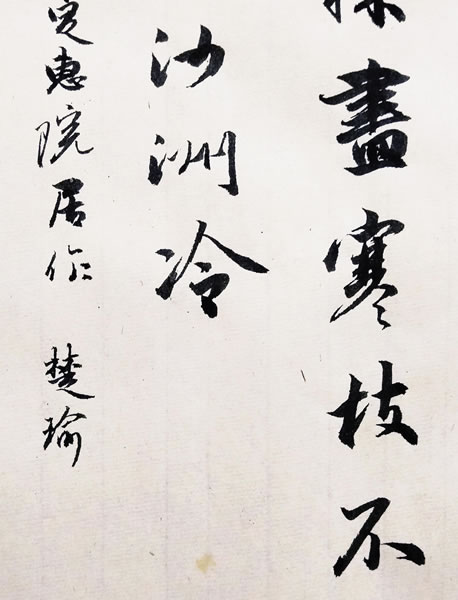 盡寒枝不
沙洲冷
定惠院居作 楚瑜